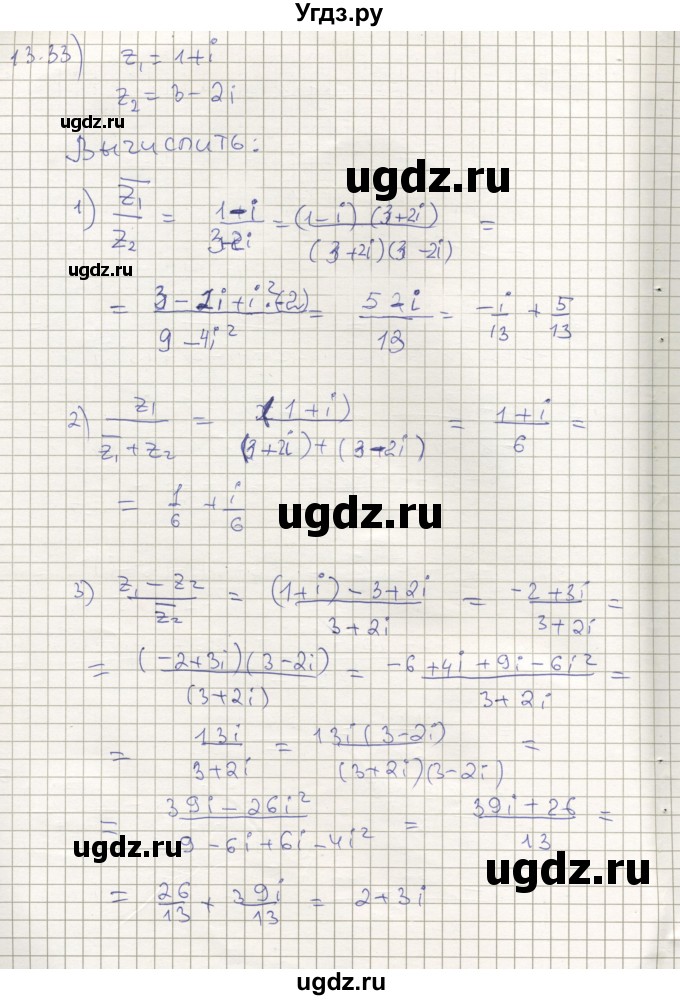 Угдз.ру
13.33) z₁ = 1+i
z₂ = 3 - 2i
ugdz.ru
Вычислить:
ugdz.ru
1) z̅₁/z₂ = (1-i)/(3-2i) = (1-i)(3+2i)/((3+2i)(3-2i)) =
ugdz.ru
= (3-2i+i²·(-2))/(9-4i²) = (5-i)/13 = -i/13 + 5/13
2) z₁/(z̅₁+z₂) = (1+i)/((3+2i)+(3-2i)) = (1+i)/6 =
= 1/6 + i/6
ugdz.ru
ugdz.ru
3) (z₁-z₂)/z̅₂ = ((1+i)-3+2i)/(3+2i) = (-2+3i)/(3+2i) =
= (-2+3i)(3-2i)/(3+2i) = (-6+4i+9i-6i²)/(3+2i) =
ugdz.ru
= 13i/(3+2i) = 13i(3-2i)/((3+2i)(3-2i)) =
= (39i-26i²)/(9-6i+6i-4i²) = (39i+26)/13 =
ugdz.ru
ugdz.ru
= 26/13 + 39i/13 = 2+3i
ugdz.ru
ugdz.ru